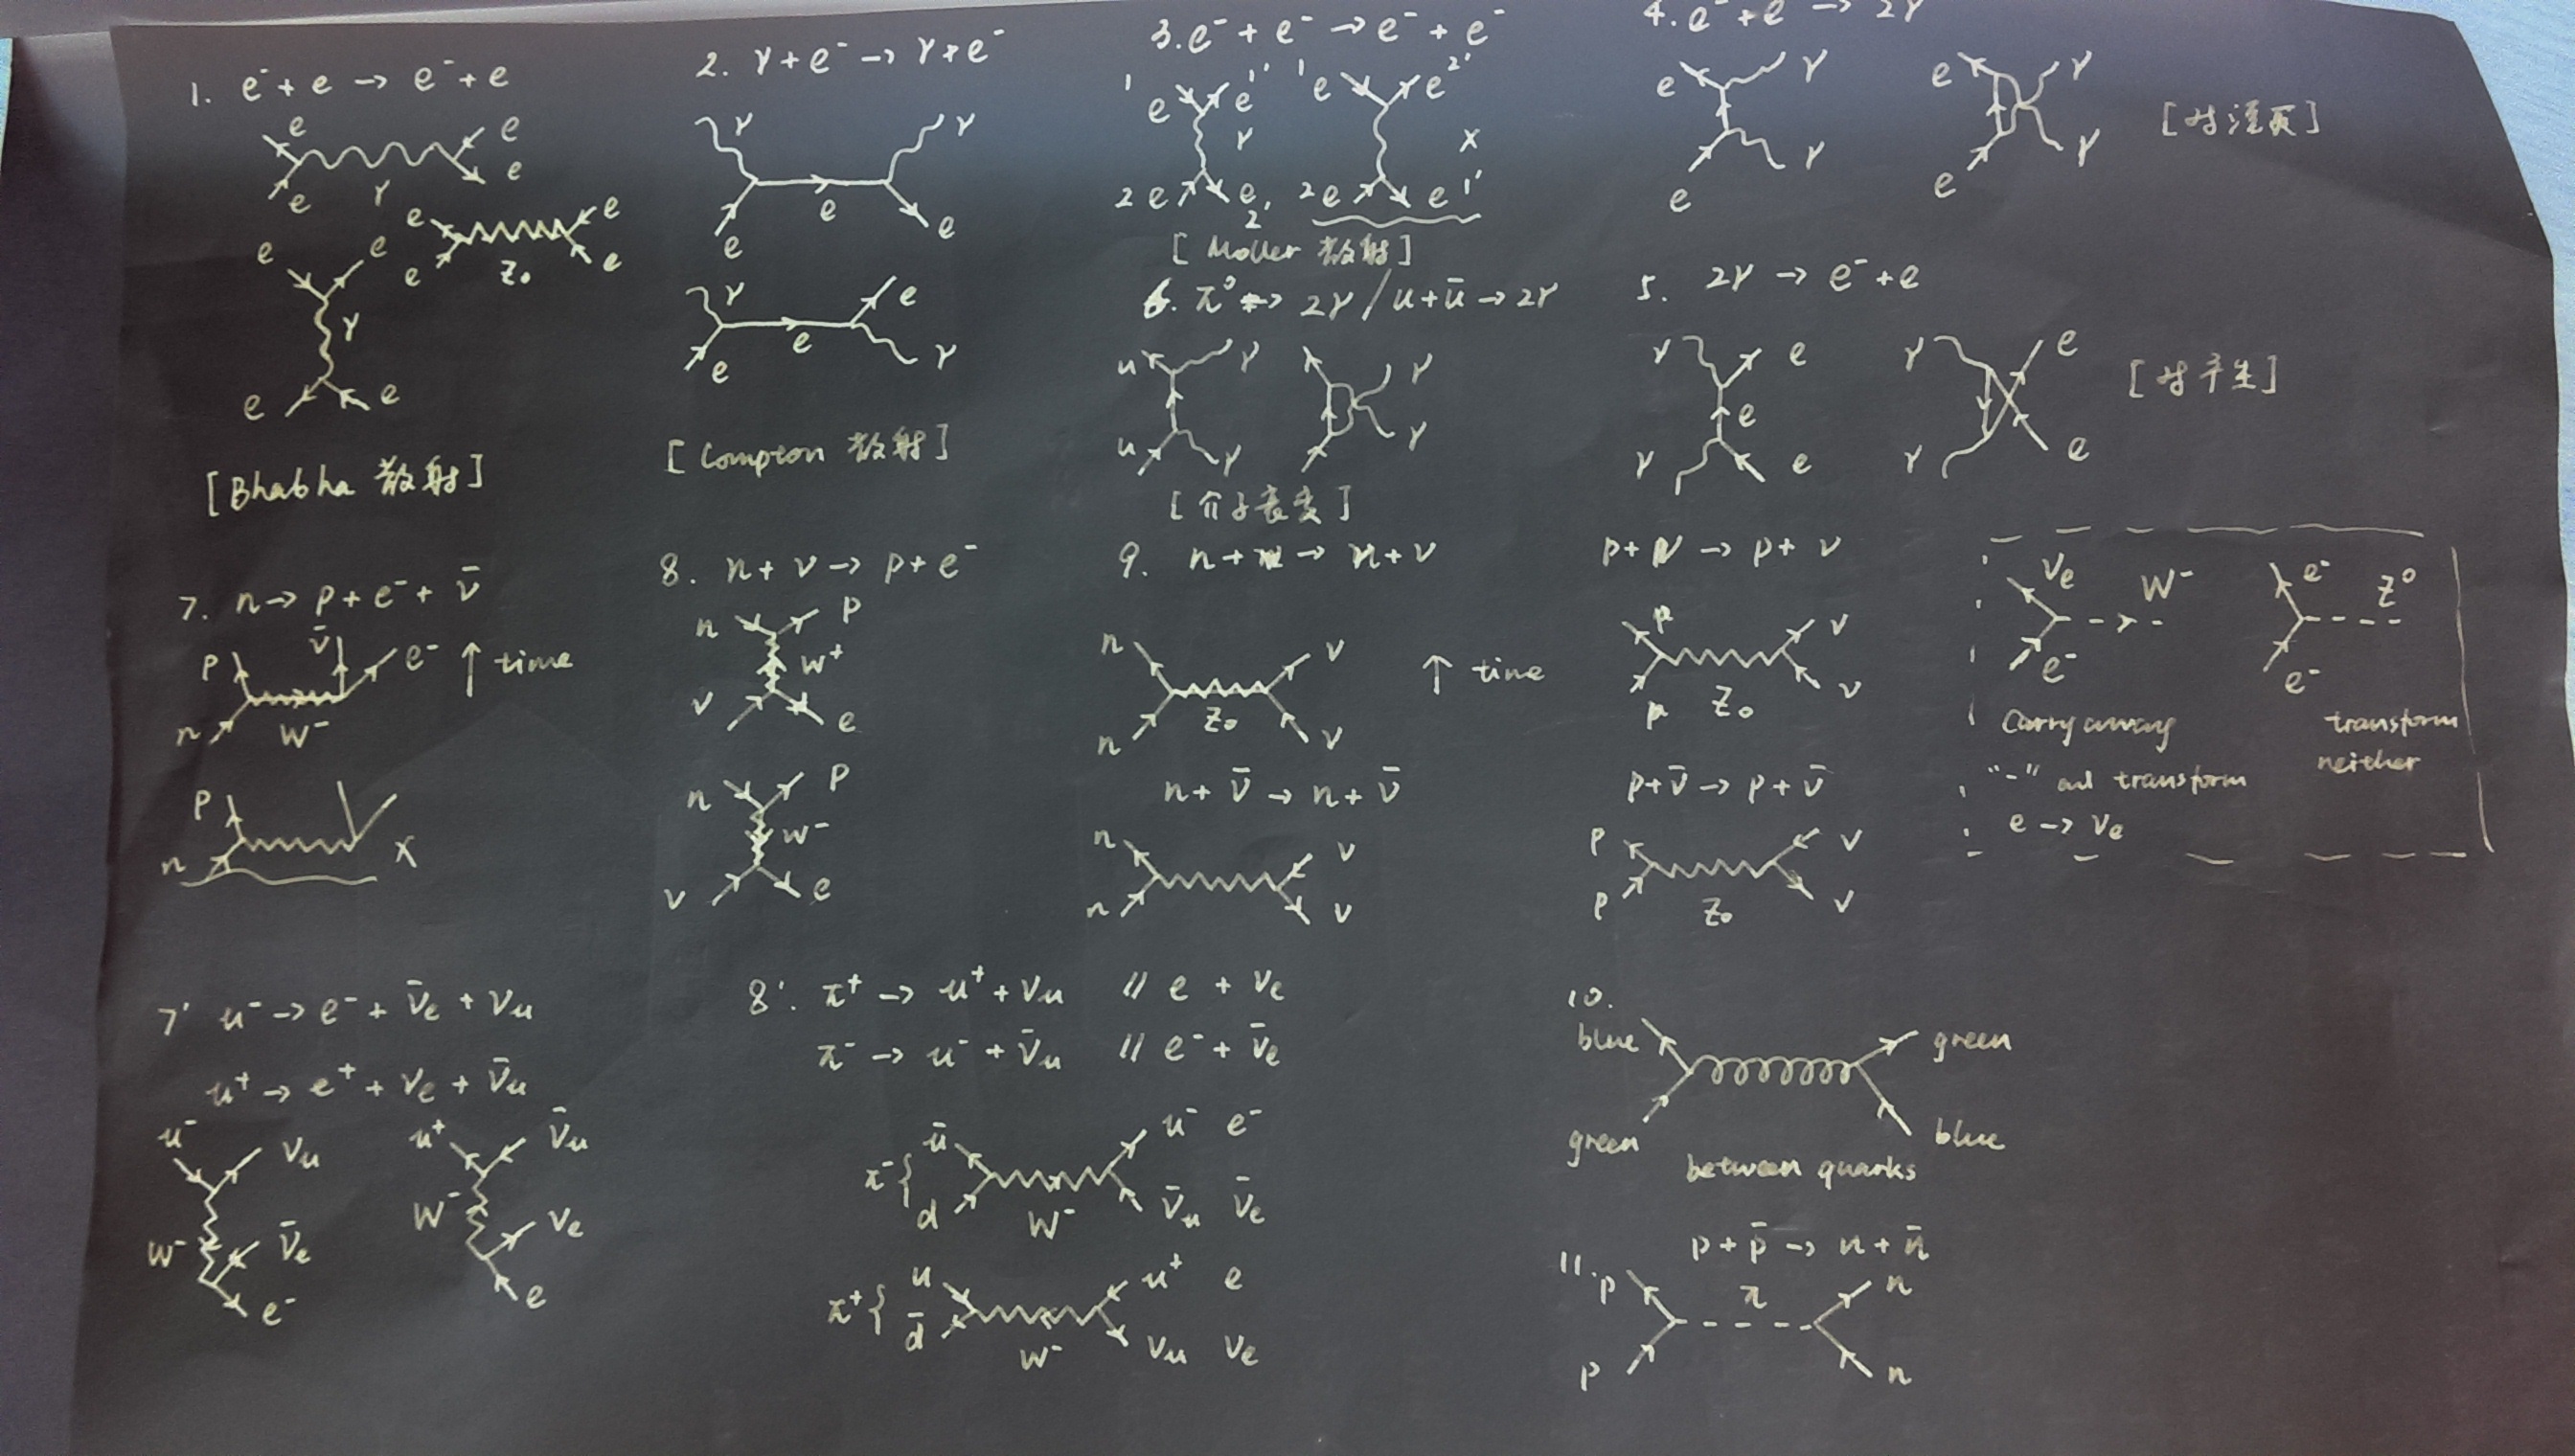 1. e⁻ + e → e⁻ + e
e e
e γ e
e e
e Z₀ e
e e
γ
e e
[Bhabha 散射]
2. γ + e⁻ → γ + e⁻
γ γ
e e e
γ e
e e γ
[Compton 散射]
3. e⁻ + e⁻ → e⁻ + e⁻
1 e e 1' 1 e e 2'
γ x
2 e e 2' 2 e e 1'
[Moller 散射]
4. e⁻ + e → 2γ
e γ e γ
e γ e γ
[对湮灭]
5. 2γ → e⁻ + e
γ e γ e
e
γ e γ e
[对产生]
6. π⁰ → 2γ / u + ū → 2γ
u γ γ
u γ γ
[介子衰变]
7. n → p + e⁻ + ν̄
p ν̄ e⁻ ↑ time
n W⁻
p
n x
8. n + ν → p + e⁻
n p
W⁺
ν e
n p
W⁻
ν e
9. n + → n + ν
n ν ↑ time
Z₀
n ν
n + ν̄ → n + ν̄
n ν
n ν
p + ν → p + ν
p ν
p Z₀ ν
p + ν̄ → p + ν̄
p ν
p Z₀ ν
νe W⁻ e⁻ Z⁰
e⁻ e⁻
Carry away
"-" and transform
e → νe
transform
neither
7' u⁻ → e⁻ + ν̄e + νu
u⁺ → e⁺ + νe + ν̄u
u⁻ νu u⁺ ν̄u
W⁻ ν̄e W⁻ νe
e⁻ e
8'. π⁺ → u⁺ + νu // e + νe
π⁻ → u⁻ + ν̄u // e⁻ + ν̄e
π⁻ { ū u⁻ e⁻
d W⁻ ν̄u ν̄e
π⁺ { u u⁺ e
d̄ W⁻ νu νe
10.
blue green
green blue
between quarks
11. p + p̄ → n + n̄
p π n
p n